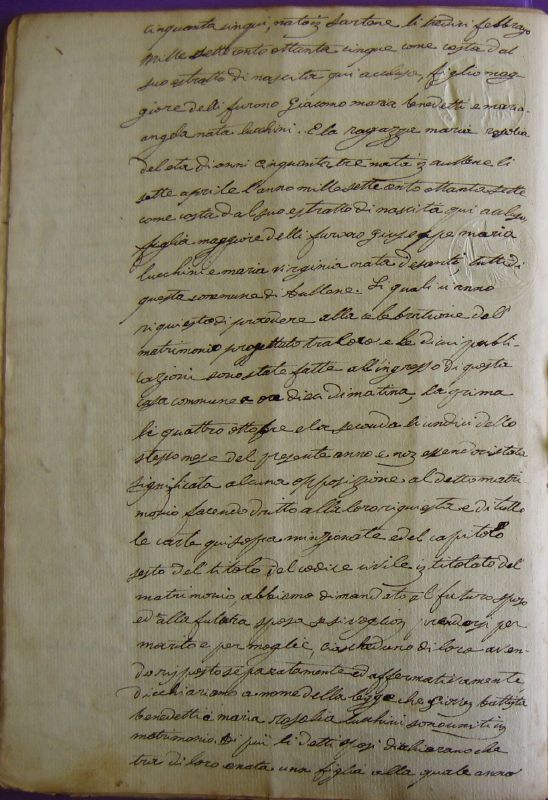 cinquanta cinqui, nato in Sartene li tredici febbrajo
mille settecento ottanta cinque come costa dal
suo estratto di nascita qui accluso, figlio mag-
giore delli furono Giacomo maria benedetti e maria
angela nata lucchini. E la ragazza maria rosolia
del età di anni cinquanta tre nata in aullene li
sette aprile l'anno mille sette cento ottanta sette
come costa dal suo estratto di nascita qui accluso
figlia maggiore delli furono Giuseppe maria
lucchini e maria virginia nata desanti tutti di
questa commune di Aullene. Li quali ci anno
riquisito di procedere alla celebratione del
matrimonio progettato tra loro e le di cui publi-
cazioni sono state fatte all'ingresso di questa
casa commune a ore dieci di matina, la prima
li quattro ottobre e la seconda li undici dello
stesso mese del presente anno e non essendoci stata
significata alcuna opposizione al detto matri
monio, facendo dritto alla loro riquesta e di tutte
le carte qui sopra minzionate ed el capitolo
sesto del titolo del codice civile intitolato del
matrimonio, abbiamo dimandato al futuro sposo
ed alla futura sposa se si voglion prendersi per
marito e per moglie, ciascheduno di loro aven-
do risposto separatamente ed affermativamente,
dicchiariamo a nome della legge che Gioan battista
benedetti e maria rosolia lucchini sono uniti in
matrimonio. Di più li detti sposi dichiarano che
tra di loro è nata una figlia alla quale anno